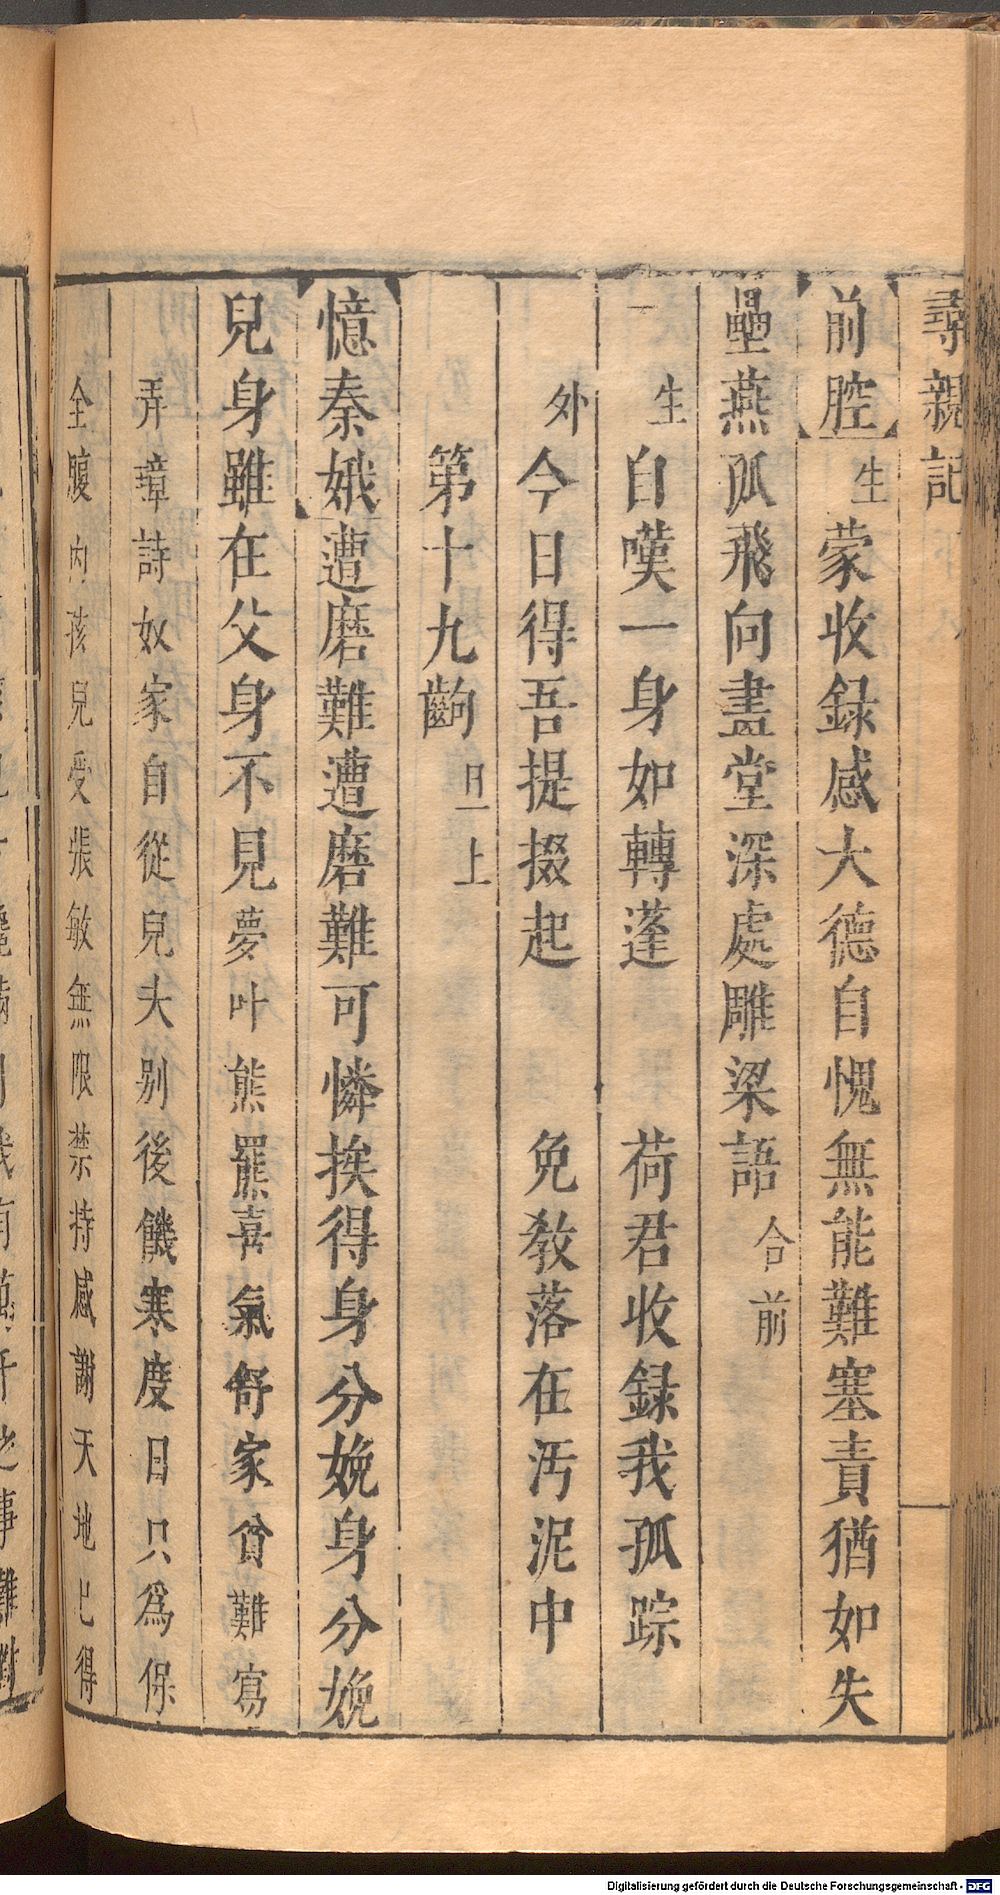 尋親記
前腔 生 蒙收録感大德自愧無能難塞責猶如失
壘燕孤飛向畫堂深處雕梁語 合前
生 自嘆一身如轉蓬 荷君收録我孤踪
外 今日得吾提掇起 免教落在汚泥中
第十九齣 旦上
憶秦娥 遭磨難遭磨難可憐挨得身分娩身分娩
兒身雖在父身不見夢叶熊羆喜氣舒家貧難寫
弄璋詩奴家自從兒夫别後饑寒度日只爲保
全腹内孩兒受張敏無限禁持感謝天地已得
Digitalisierung gefördert durch die Deutsche Forschungsgemeinschaft - DFG